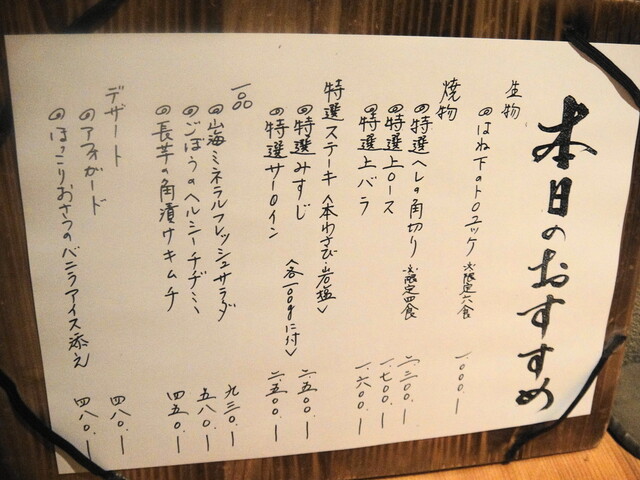 本日のおすすめ
生物
◎はね下のトロユッケ ※限定六食 一、〇〇〇.ー
焼物
◎特選ヘレの角切り ※限定四食 二、三〇〇.ー
◎特選上ロース 一、七〇〇.ー
◎特選上バラ 一、六〇〇.ー
特選ステーキ〈本わさび・岩塩〉
◎特選みすじ 二、五〇〇.ー
◎特選サーロイン 〈各一〇〇gに付〉 二、五〇〇.ー
一品
◎山海ミネラルフレッシュサラダ 九三〇.ー
◎ごぼうのヘルシーチヂミ 五八〇.ー
◎長芋の角漬けキムチ 四五〇.ー
デザート
◎アフォガード 四八〇.ー
◎ほっこりおさつのバニラアイス添え 四八〇.ー